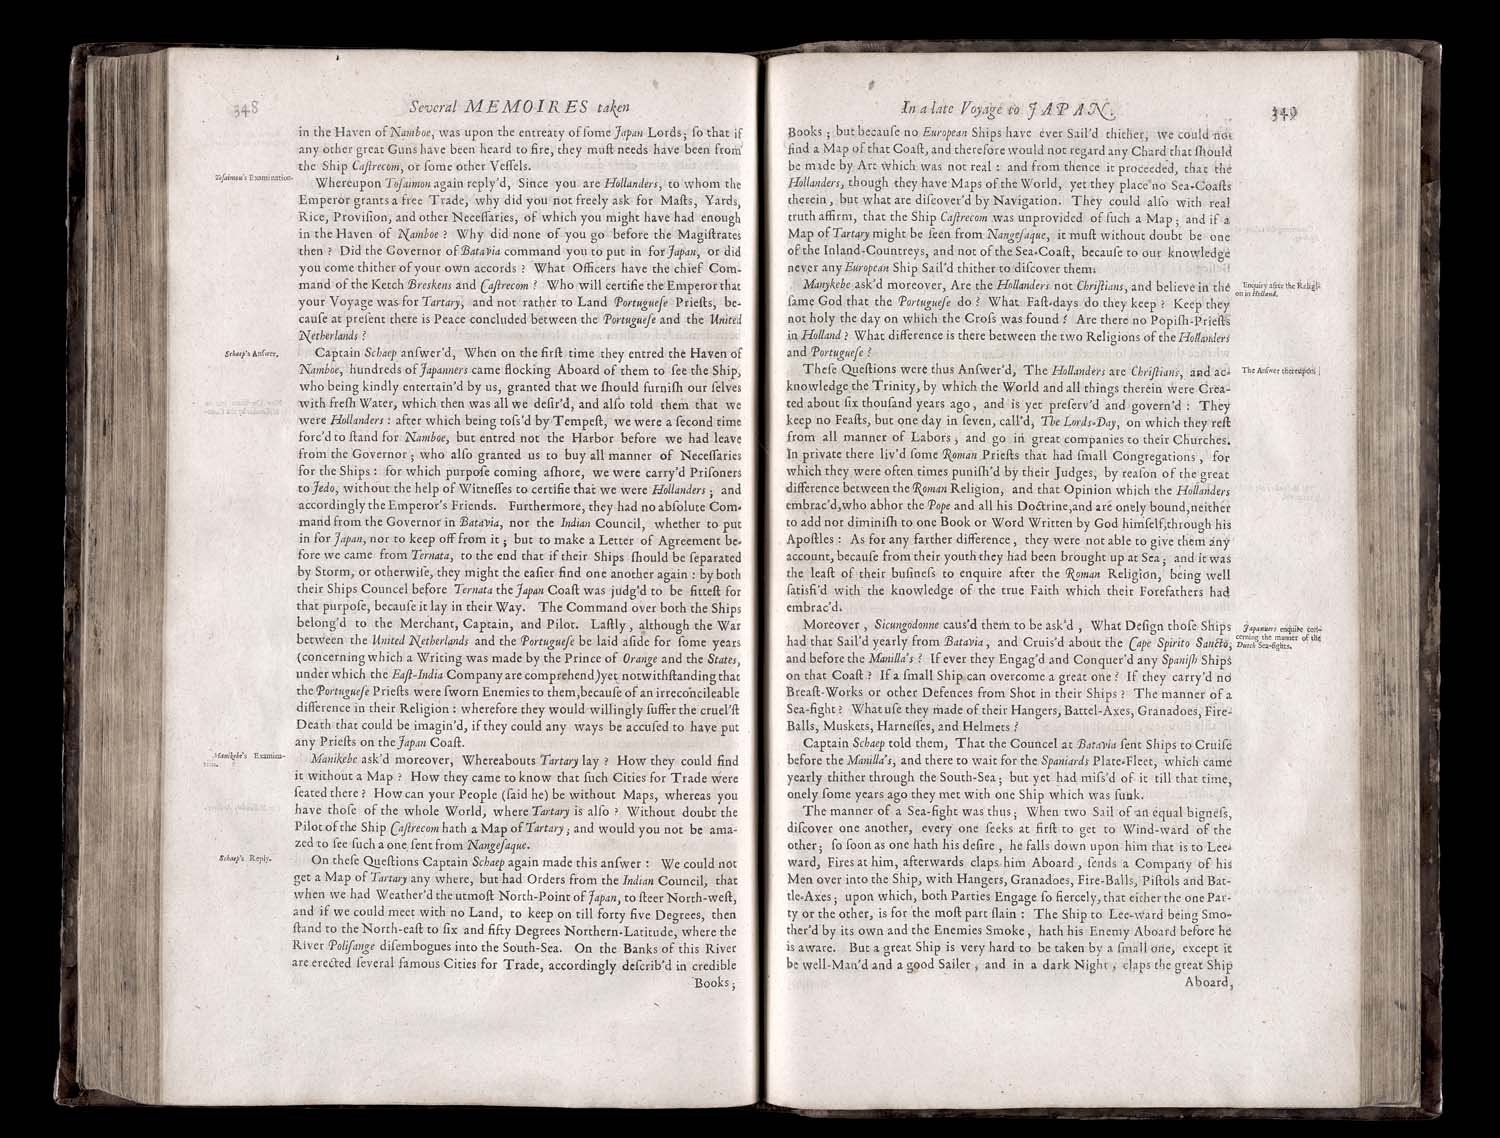 348
Several MEMOIRES taken
in the Haven of Namboe, was upon the entreaty of ſome Japan Lords; ſo that if
any other great Guns have been heard to fire, they muſt needs have been from
the Ship Caſtrecom, or ſome other Veſſels.
Toſaimon's Examination.
Whereupon Toſaimon again reply'd, Since you are Hollanders, to whom the
Emperor grants a free Trade, why did you not freely ask for Maſts, Yards,
Rice, Proviſion, and other Neceſſaries, of which you might have had enough
in the Haven of Namboe ? Why did none of you go before the Magiſtrates
then ? Did the Governor of Batavia command you to put in for Japan, or did
you come thither of your own accords ? What Officers have the chief Com-
mand of the Ketch Breskens and Caſtrecom ? Who will certifie the Emperor that
your Voyage was for Tartary, and not rather to Land Portugueſe Prieſts, be-
cauſe at preſent there is Peace concluded between the Portugueſe and the United
Netherlands ?
Schaep's Anſwer.
Captain Schaep anſwer'd, When on the firſt time they entred the Haven of
Namboe, hundreds of Japanners came flocking Aboard of them to ſee the Ship,
who being kindly entertain'd by us, granted that we ſhould furniſh our ſelves
with freſh Water, which then was all we deſir'd, and alſo told them that we
were Hollanders : after which being toſs'd by Tempeſt, we were a ſecond time
forc'd to ſtand for Namboe, but entred not the Harbor before we had leave
from the Governor; who alſo granted us to buy all manner of Neceſſaries
for the Ships : for which purpoſe coming aſhore, we were carry'd Priſoners
to Jedo, without the help of Witneſſes to certifie that we were Hollanders; and
accordingly the Emperor's Friends. Furthermore, they had no abſolute Com-
mand from the Governor in Batavia, nor the Indian Council, whether to put
in for Japan, nor to keep off from it; but to make a Letter of Agreement be-
fore we came from Ternata, to the end that if their Ships ſhould be ſeparated
by Storm, or otherwiſe, they might the eaſier find one another again : by both
their Ships Councel before Ternata the Japan Coaſt was judg'd to be fitteſt for
that purpoſe, becauſe it lay in their Way. The Command over both the Ships
belong'd to the Merchant, Captain, and Pilot. Laſtly, although the War
between the United Netherlands and the Portugueſe be laid aſide for ſome years
(concerning which a Writing was made by the Prince of Orange and the States,
under which the Eaſt-India Company are comprehend)yet notwithſtanding that
the Portugueſe Prieſts were ſworn Enemies to them,becauſe of an irreconcileable
difference in their Religion : wherefore they would willingly ſuffer the cruel'ſt
Death that could be imagin'd, if they could any ways be accuſed to have put
any Prieſts on the Japan Coaſt.
Manikebe's Examina-
tion.
Manikebe ask'd moreover, Whereabouts Tartary lay ? How they could find
it without a Map ? How they came to know that ſuch Cities for Trade were
ſeated there ? How can your People (ſaid he) be without Maps, whereas you
have thoſe of the whole World, where Tartary is alſo ? Without doubt the
Pilot of the Ship Caſtrecom hath a Map of Tartary; and would you not be ama-
zed to ſee ſuch a one ſent from Nangeſaque.
Schaep's Reply.
On theſe Queſtions Captain Schaep again made this anſwer : We could not
get a Map of Tartary any where, but had Orders from the Indian Council, that
when we had Weather'd the utmoſt North-Point of Japan, to ſteer North-weſt,
and if we could meet with no Land, to keep on till forty five Degrees, then
ſtand to the North-eaſt to ſix and fifty Degrees Northern-Latitude, where the
River Poliſange diſembogues into the South-Sea. On the Banks of this River
are erected ſeveral famous Cities for Trade, accordingly deſcrib'd in credible
Books;
In a late Voyage to JAPAN.
349
Books ; but becauſe no European Ships have ever Sail'd thither, we could not
find a Map of that Coaſt, and therefore would not regard any Chard that ſhould
be made by Art which was not real : and from thence it proceeded, that the
Hollanders, though they have Maps of the World, yet they place no Sea-Coaſts
therein, but what are diſcover'd by Navigation. They could alſo with real
truth affirm, that the Ship Caſtrecom was unprovided of ſuch a Map; and if a
Map of Tartary might be ſeen from Nangeſaque, it muſt without doubt be one
of the Inland-Countreys, and not of the Sea-Coaſt, becauſe to our knowledge
never any European Ship Sail'd thither to diſcover them.
Manykebe ask'd moreover, Are the Hollanders not Chriſtians, and believe in the
ſame God that the Portugueſe do ? What Faſt-days do they keep ? Keep they
not holy the day on which the Croſs was found ? Are there no Popiſh-Prieſts
in Holland ? What difference is there between the two Religions of the Hollanders
and Portugueſe ?
Enquiry after the Religi-
on in Holland.
Theſe Queſtions were thus Anſwer'd, The Hollanders are Chriſtians, and ac-
knowledge the Trinity, by which the World and all things therein were Crea-
ted about ſix thouſand years ago, and is yet preſerv'd and govern'd : They
keep no Feaſts, but one day in ſeven, call'd, The Lords-Day, on which they reſt
from all manner of Labors, and go in great companies to their Churches.
In private there liv'd ſome Roman Prieſts that had ſmall Congregations, for
which they were often times puniſh'd by their Judges, by reaſon of the great
difference between the Roman Religion, and that Opinion which the Hollanders
embrac'd,who abhor the Pope and all his Doctrine,and are onely bound,neither
to add nor diminiſh to one Book or Word Written by God himſelf,through his
Apoſtles : As for any farther difference, they were not able to give them any
account, becauſe from their youth they had been brought up at Sea; and it was
the leaſt of their buſineſs to enquire after the Roman Religion, being well
ſatisfi'd with the knowledge of the true Faith which their Forefathers had
embrac'd.
The Anſwer thereupon.
Moreover, Sicungodonne caus'd them to be ask'd, What Deſign thoſe Ships
had that Sail'd yearly from Batavia, and Cruis'd about the Cape Spirito Sancto,
and before the Manilla's ? If ever they Engag'd and Conquer'd any Spaniſh Ships
on that Coaſt ? If a ſmall Ship can overcome a great one ? If they carry'd no
Breaſt-Works or other Defences from Shot in their Ships ? The manner of a
Sea-fight ? What uſe they made of their Hangers, Battel-Axes, Granadoes, Fire-
Balls, Muskets, Harneſſes, and Helmets ?
Japanners enquire con-
cerning the manner of the
Dutch Sea-fights.
Captain Schaep told them, That the Councel at Batavia ſent Ships to Cruiſe
before the Manilla's, and there to wait for the Spaniards Plate-Fleet, which came
yearly thither through the South-Sea; but yet had miſs'd of it till that time,
onely ſome years ago they met with one Ship which was ſunk.
The manner of a Sea-fight was thus; When two Sail of an equal bigneſs,
diſcover one another, every one ſeeks at firſt to get to Wind-ward of the
other; ſo ſoon as one hath his deſire, he falls down upon him that is to Lee-
ward, Fires at him, afterwards claps him Aboard, ſends a Company of his
Men over into the Ship, with Hangers, Granadoes, Fire-Balls, Piſtols and Bat-
tle-Axes; upon which, both Parties Engage ſo fiercely, that either the one Par-
ty or the other, is for the moſt part ſlain : The Ship to Lee-ward being Smo-
ther'd by its own and the Enemies Smoke, hath his Enemy Aboard before he
is aware. But a great Ship is very hard to be taken by a ſmall one, except it
be well-Man'd and a good Sailer, and in a dark Night, claps the great Ship
Aboard,